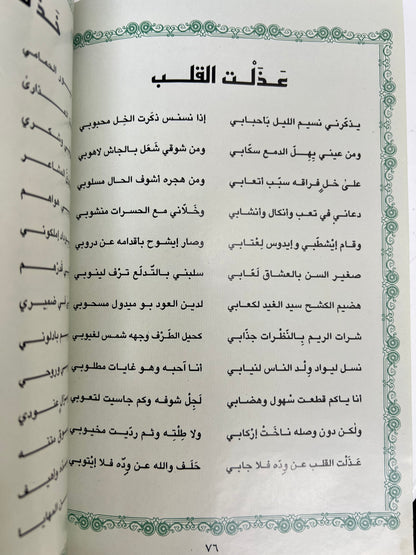 عَـذَلْـت القلـب
يذكّرني نسيم الليل بَاحبابي إذا نسنس ذكرت الخِل محبوبي
ومن عيني يِهِلّ الدمع سكّابي ومن شوقي شَعَل بالجاش لاهوبي
علىٰ خلٍ فراقه سبّب اتعابي ومن هجره أشوف الحال مسلوبي
دعاني في تعب وانكال وانشابي وخَلّاني مع الحسرات منشوبي
وقام إيْشطّبي وإيدوس لِعْتابي وصار إيشوح باقدامه عن دروبي
صغير السن بالعشاق لَعّابي سلبني بالتّدلّع تَرْف لينوبي
هضيم الكشح سيد الغيد لكعابي لدين العود بو ميدول مسحوبي
شرات الريم بِالنّظرات جذّابي كحيل الطّرْف وجهه شمس لغيوبي
نسل ليواد ولْد الناس لنيابي أنا احبه وهو غايات مطلوبي
انا ياكم قطعت سْهول وهضابي لَجِلْ شوفه وكم جاسيت لتعوبي
ولكن دون وصله ناخَتْ ارْكابي ولا طِلْتِه وثم ردّيت مخيوبي
عَذَلْت القلب عن ودّه فلا جابي حَلَف والله عن ودّه فلا إيْتوبي
٧٦
ـور الحمامي